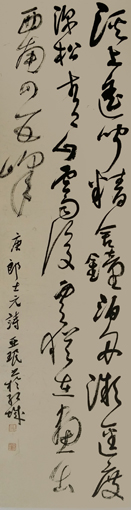 溪上遙聞精舍鐘泊舟微徑度
深松青山霽後雲猶在畫出
西南四五峰
唐郎士元詩